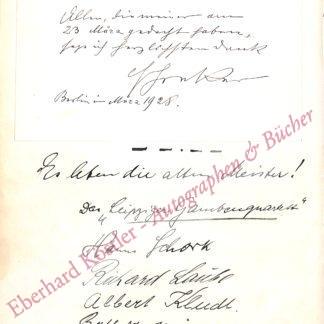 Allen, die meiner am
23 März gedacht haben,
sage ich herzlichsten Dank
Schreker
Berlin im März 1928.
Es leben die alten Meister!
Das "Leipziger Gambenquartett"
Hans Schork
Richard Laube
Albert Kludt.
Eberhard Köstler - Autographen & Bücher